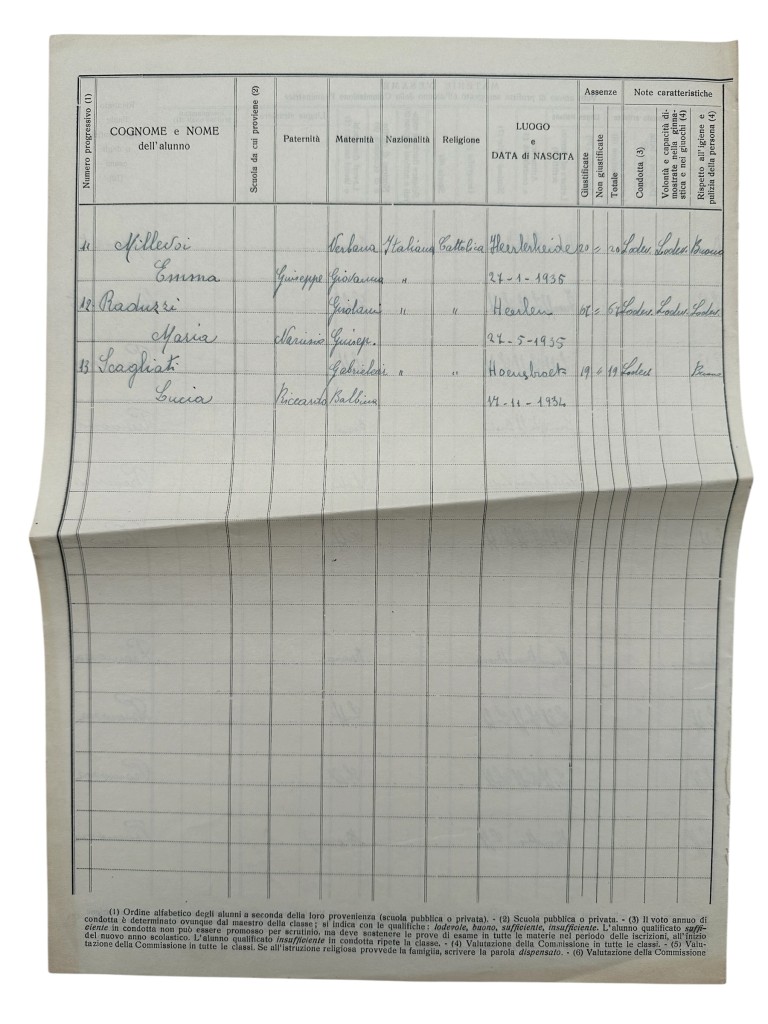 Assenze Note caratteristiche
Numero progressivo (1)
COGNOME e NOME
dell'alunno
Scuola da cui proviene (2)
Paternità Maternità Nazionalità Religione
LUOGO
e
DATA di NASCITA
Giustificate
Non giustificate
Totale
Condotta (3)
Volontà e capacità di-
mostrate nella ginna-
stica e nei giuochi (4)
Rispetto all'igiene e
pulizia della persona (4)
11 Millevoi Verbana Italiana Cattolica Heerlerheide 20 " 20 Lodev. Lodev. Buono
Emma Giuseppe Giovanna " 27-1-1935
12. Raduzzi Girolami " " Heerlen 67 " 67 Lodev. Lodev. Lodev.
Maria Giusep. 27-5-1935
13 Scagliati " " Hoensbroek 19 " 19 Lodev.
Lucia Riccardo Balbina 17-11-1934
(1) Ordine alfabetico degli alunni a seconda della loro provenienza (scuola pubblica o privata). - (2) Scuola pubblica o privata. - (3) Il voto annuo di
condotta è determinato ovunque dal maestro della classe; si indica con le qualifiche: lodevole, buono, sufficiente, insufficiente. L'alunno qualificato suffi-
ciente in condotta non può essere promosso per scrutinio, ma deve sostenere le prove di esame in tutte le materie nel periodo delle iscrizioni, all'inizio
del nuovo anno scolastico. L'alunno qualificato insufficiente in condotta ripete la classe. - (4) Valutazione della Commissione in tutte le classi. - (5) Valu-
tazione della Commissione in tutte le classi. Se all'istruzione religiosa provvede la famiglia, scrivere la parola dispensato. - (6) Valutazione della Commissione